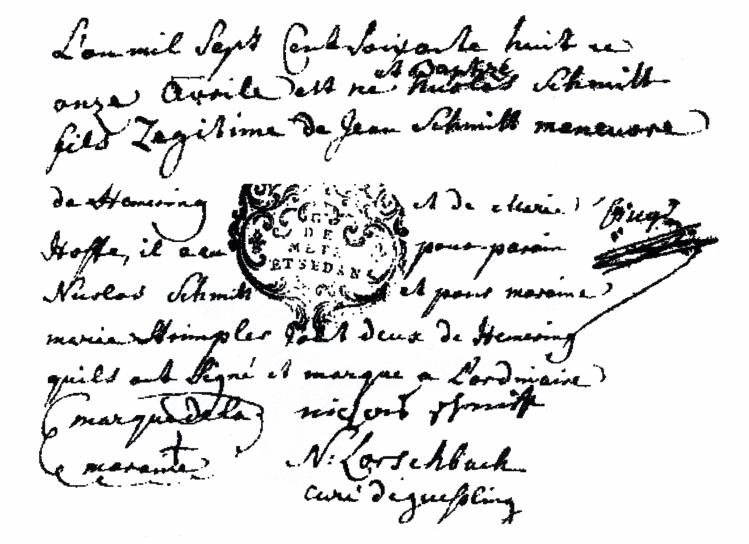 L'an mil Sept Cent Soixante huit le
et Baptizé
onze Avrile est ne Nicolas Schmitt
fils Legitime de Jean Schmitt maneuvre
de Hemering et de Marie
G
DE
METZ
ET SEDAN
Hoffe, il a eu pour parain
Nicolas Schmitt et pour maraine
marie Strimpler tout deux de Hemering
quils ont signé et marque a L'ordinaire
marque de la nicolas schmitt
maraine N: Lorschbach
curé de guessling